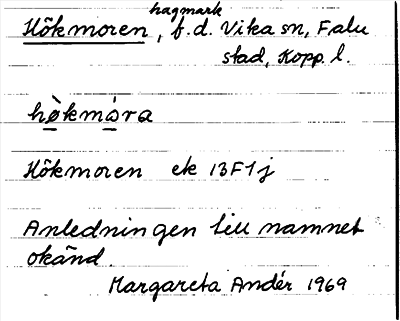 hagmark
Hökmoren, f.d. Vika sn, Falu
stad, Kopp. l.
hö̀kmòra
Hökmoren ek 13F1j
Anledningen till namnet
okänd.
Margareta Andér 1969